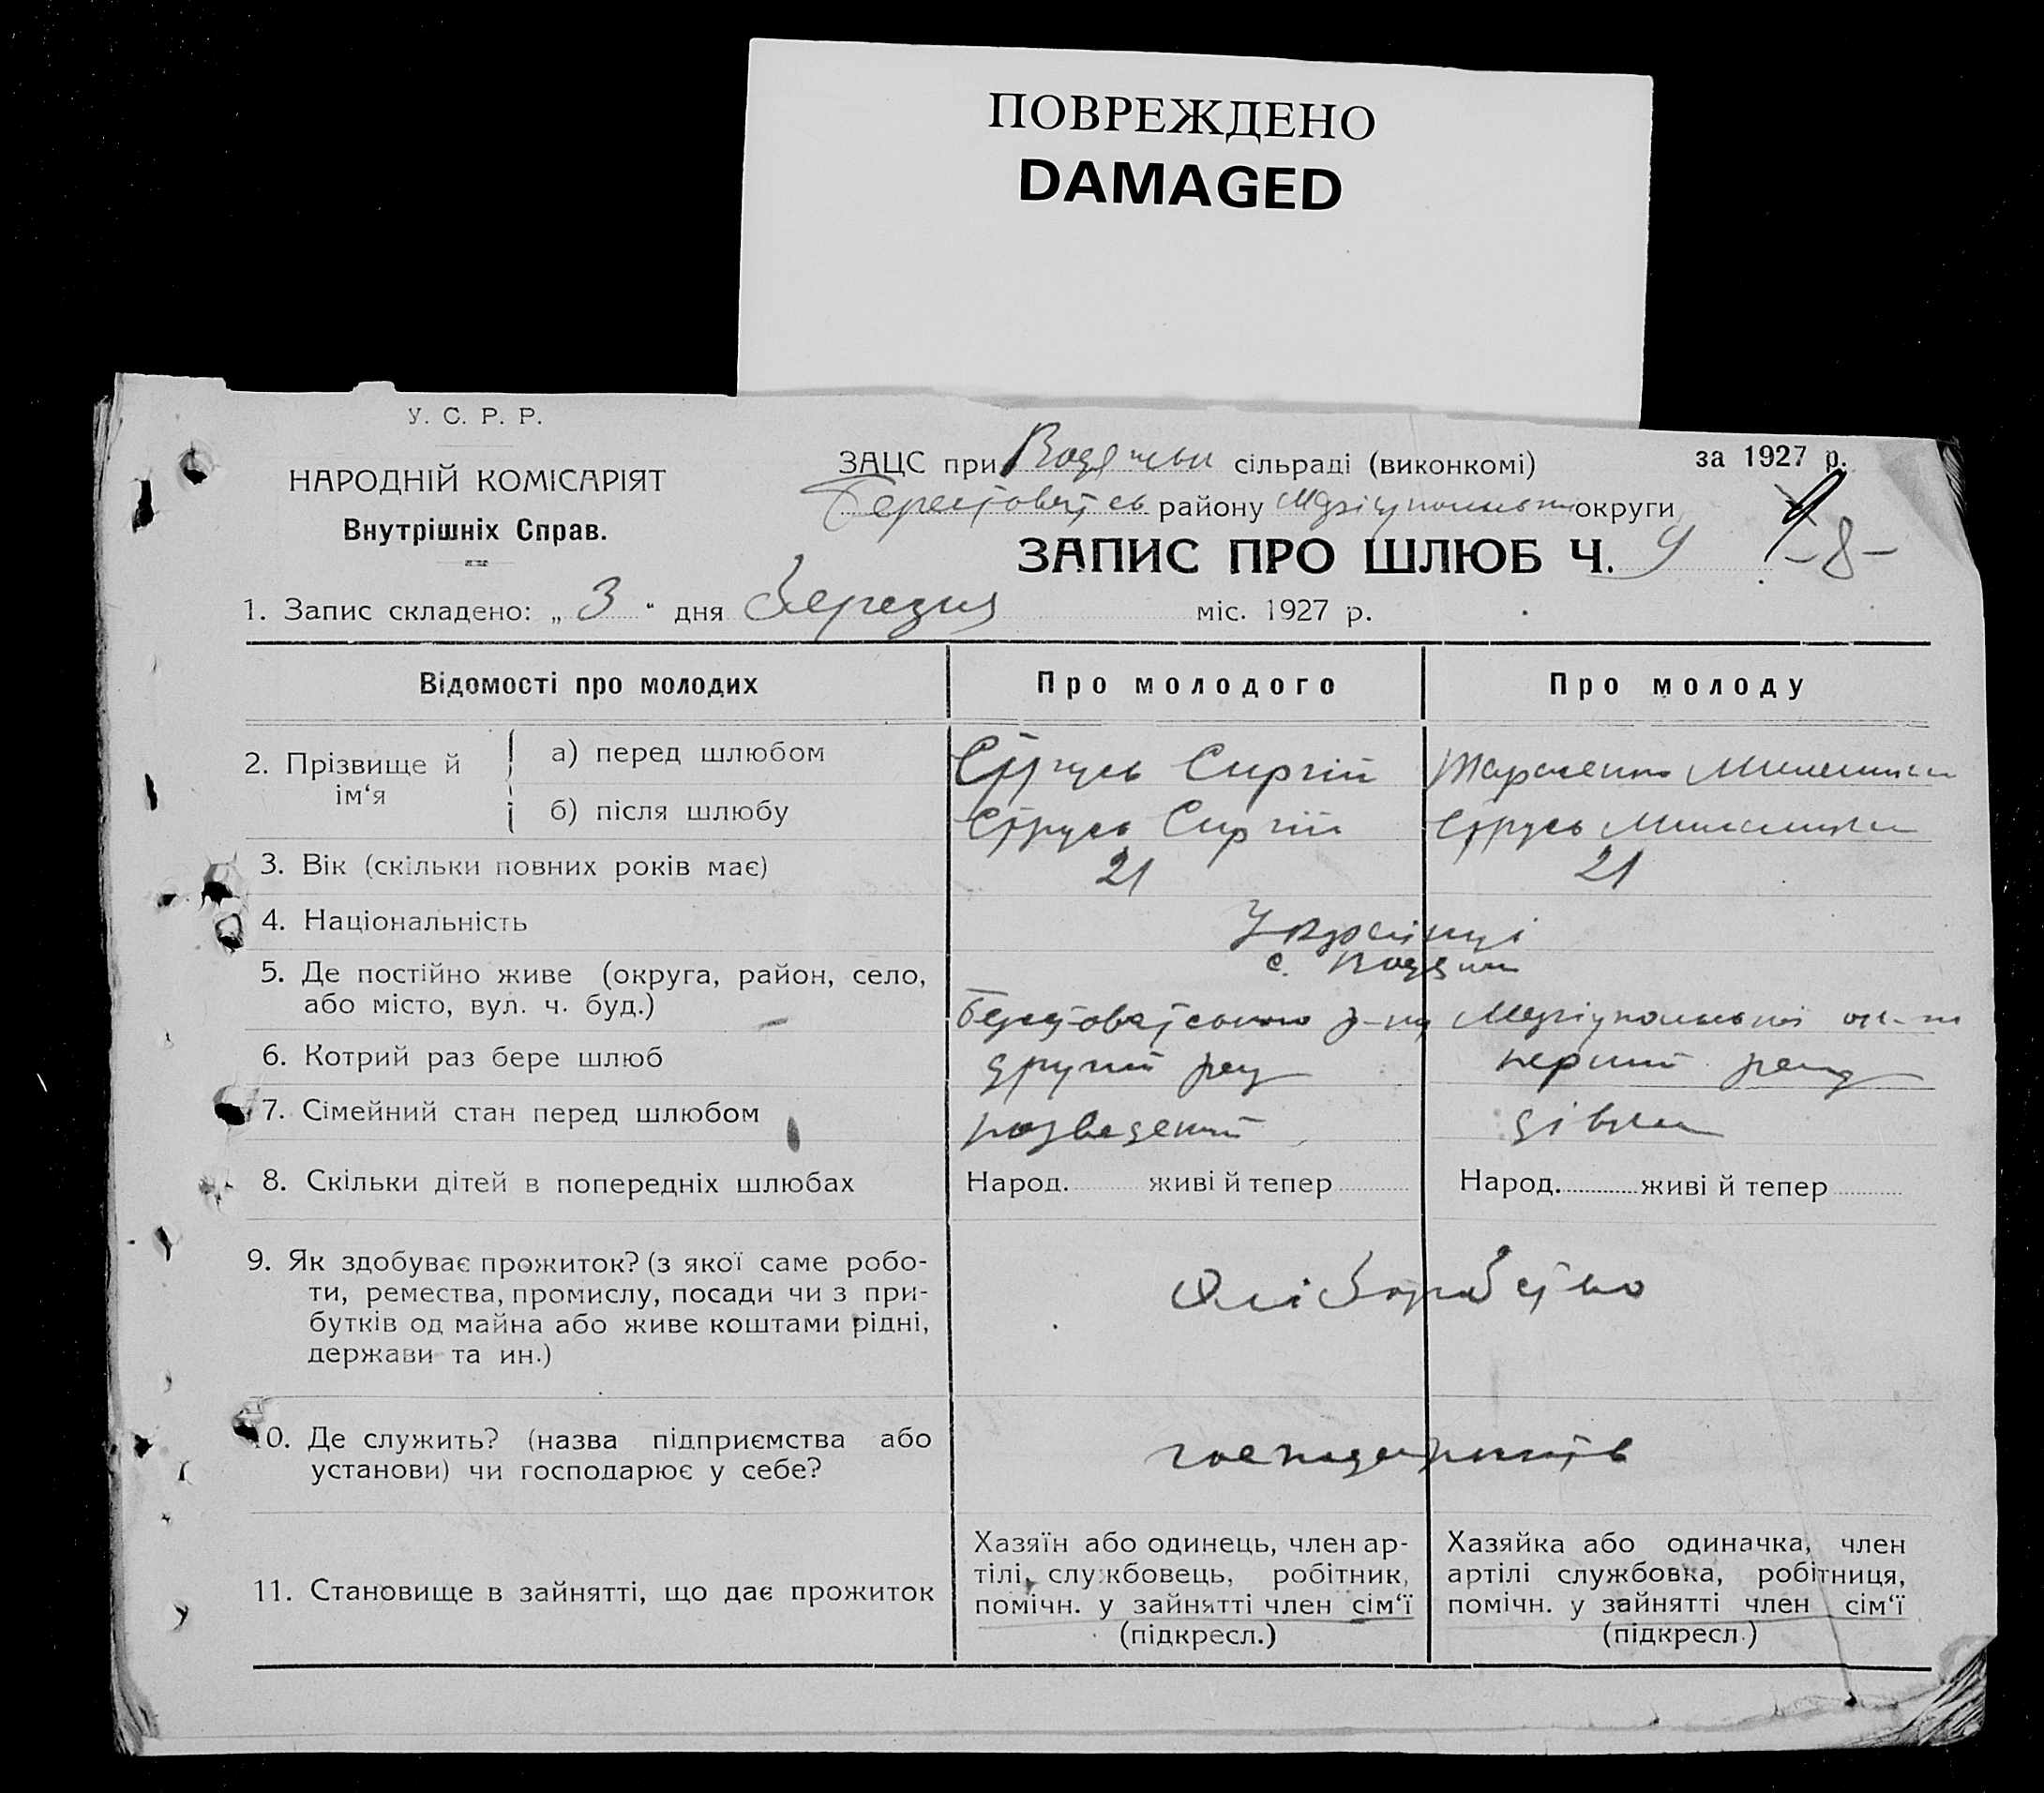 ПОВРЕЖДЕНО
DAMAGED
У. С. Р. Р.
НАРОДНІЙ КОМІСАРІЯТ
Внутрішніх Справ.
ЗАЦС при сільраді (виконкомі)
за 1927 р.
району округи
ЗАПИС ПРО ШЛЮБ Ч.
-8-
1. Запис складено: „ 3 " дня Березня міс. 1927 р.
Відомості про молодих
Про молодого
Про молоду
2. Прізвище й ім‘я
а) перед шлюбом
Струсь Сиргій
б) після шлюбу
Струсь Сиргій
Струсь
3. Вік (скільки повних років має)
21
21
4. Національність
Українці
5. Де постійно живе (округа, район, село,
або місто, вул. ч. буд.)
с.
6. Котрий раз бере шлюб
другий раз
перший раз
7. Сімейний стан перед шлюбом
розведений
дівка
8. Скільки дітей в попередніх шлюбах
Народ. живі й тепер
Народ. живі й тепер
9. Як здобуває прожиток? (з якої саме робо-
ти, ремества, промислу, посади чи з при-
бутків од майна або живе коштами рідні,
держави та ин.)
Хліборобство
10. Де служить? (назва підприємства або
установи) чи господарює у себе?
11. Становище в зайнятті, що дає прожиток
Хазяїн або одинець, член ар-
тілі, службовець, робітник,
помічн. у зайнятті член сім‘ї
(підкресл.)
Хазяйка або одиначка, член
артілі службовка, робітниця,
помічн. у зайнятті член сім‘ї
(підкресл.)